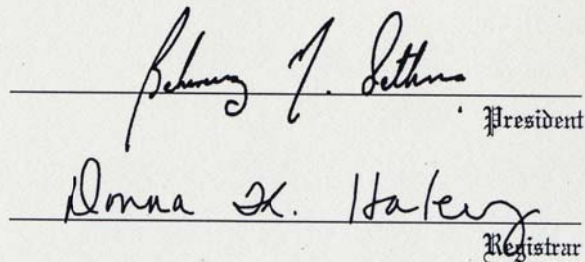 Beheruz N. Sethna
President
Donna K. Haley
Registrar